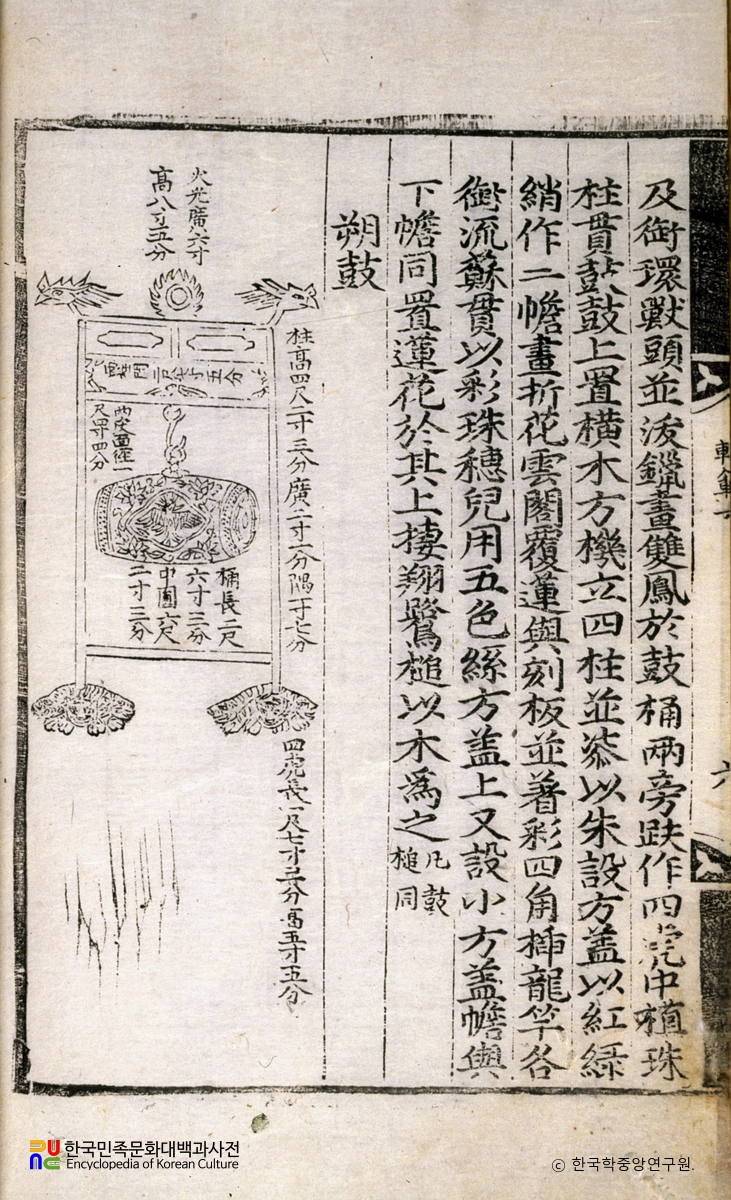 及銜環獸頭並泼鑞畫雙鳳於鼓桶兩旁趺作四虎中植珠
柱貫鼗鼓上置橫木方機立四柱並漆以朱設方盖以紅綠
綃作二幨畫折花雲閣覆蓮與刻板並著彩四角揷龍竿各
銜流蘇貫以彩珠穗兒用五色絲方盖上又設小方盖幨與
下幨同置蓮花於其上捿翔鷺槌以木爲之
凡鼓
槌同
朔鼓
火光廣六寸
高八寸五分
柱高四尺二寸三分廣二寸二分隅一寸七分
兩皮面徑一
尺四寸四分
桶長二尺
六寸三分
中圍六尺
二寸三分
四虎長一尺七寸三分高五寸五分
六
한국민족문화대백과사전
Encyclopedia of Korean Culture
© 한국학중앙연구원.